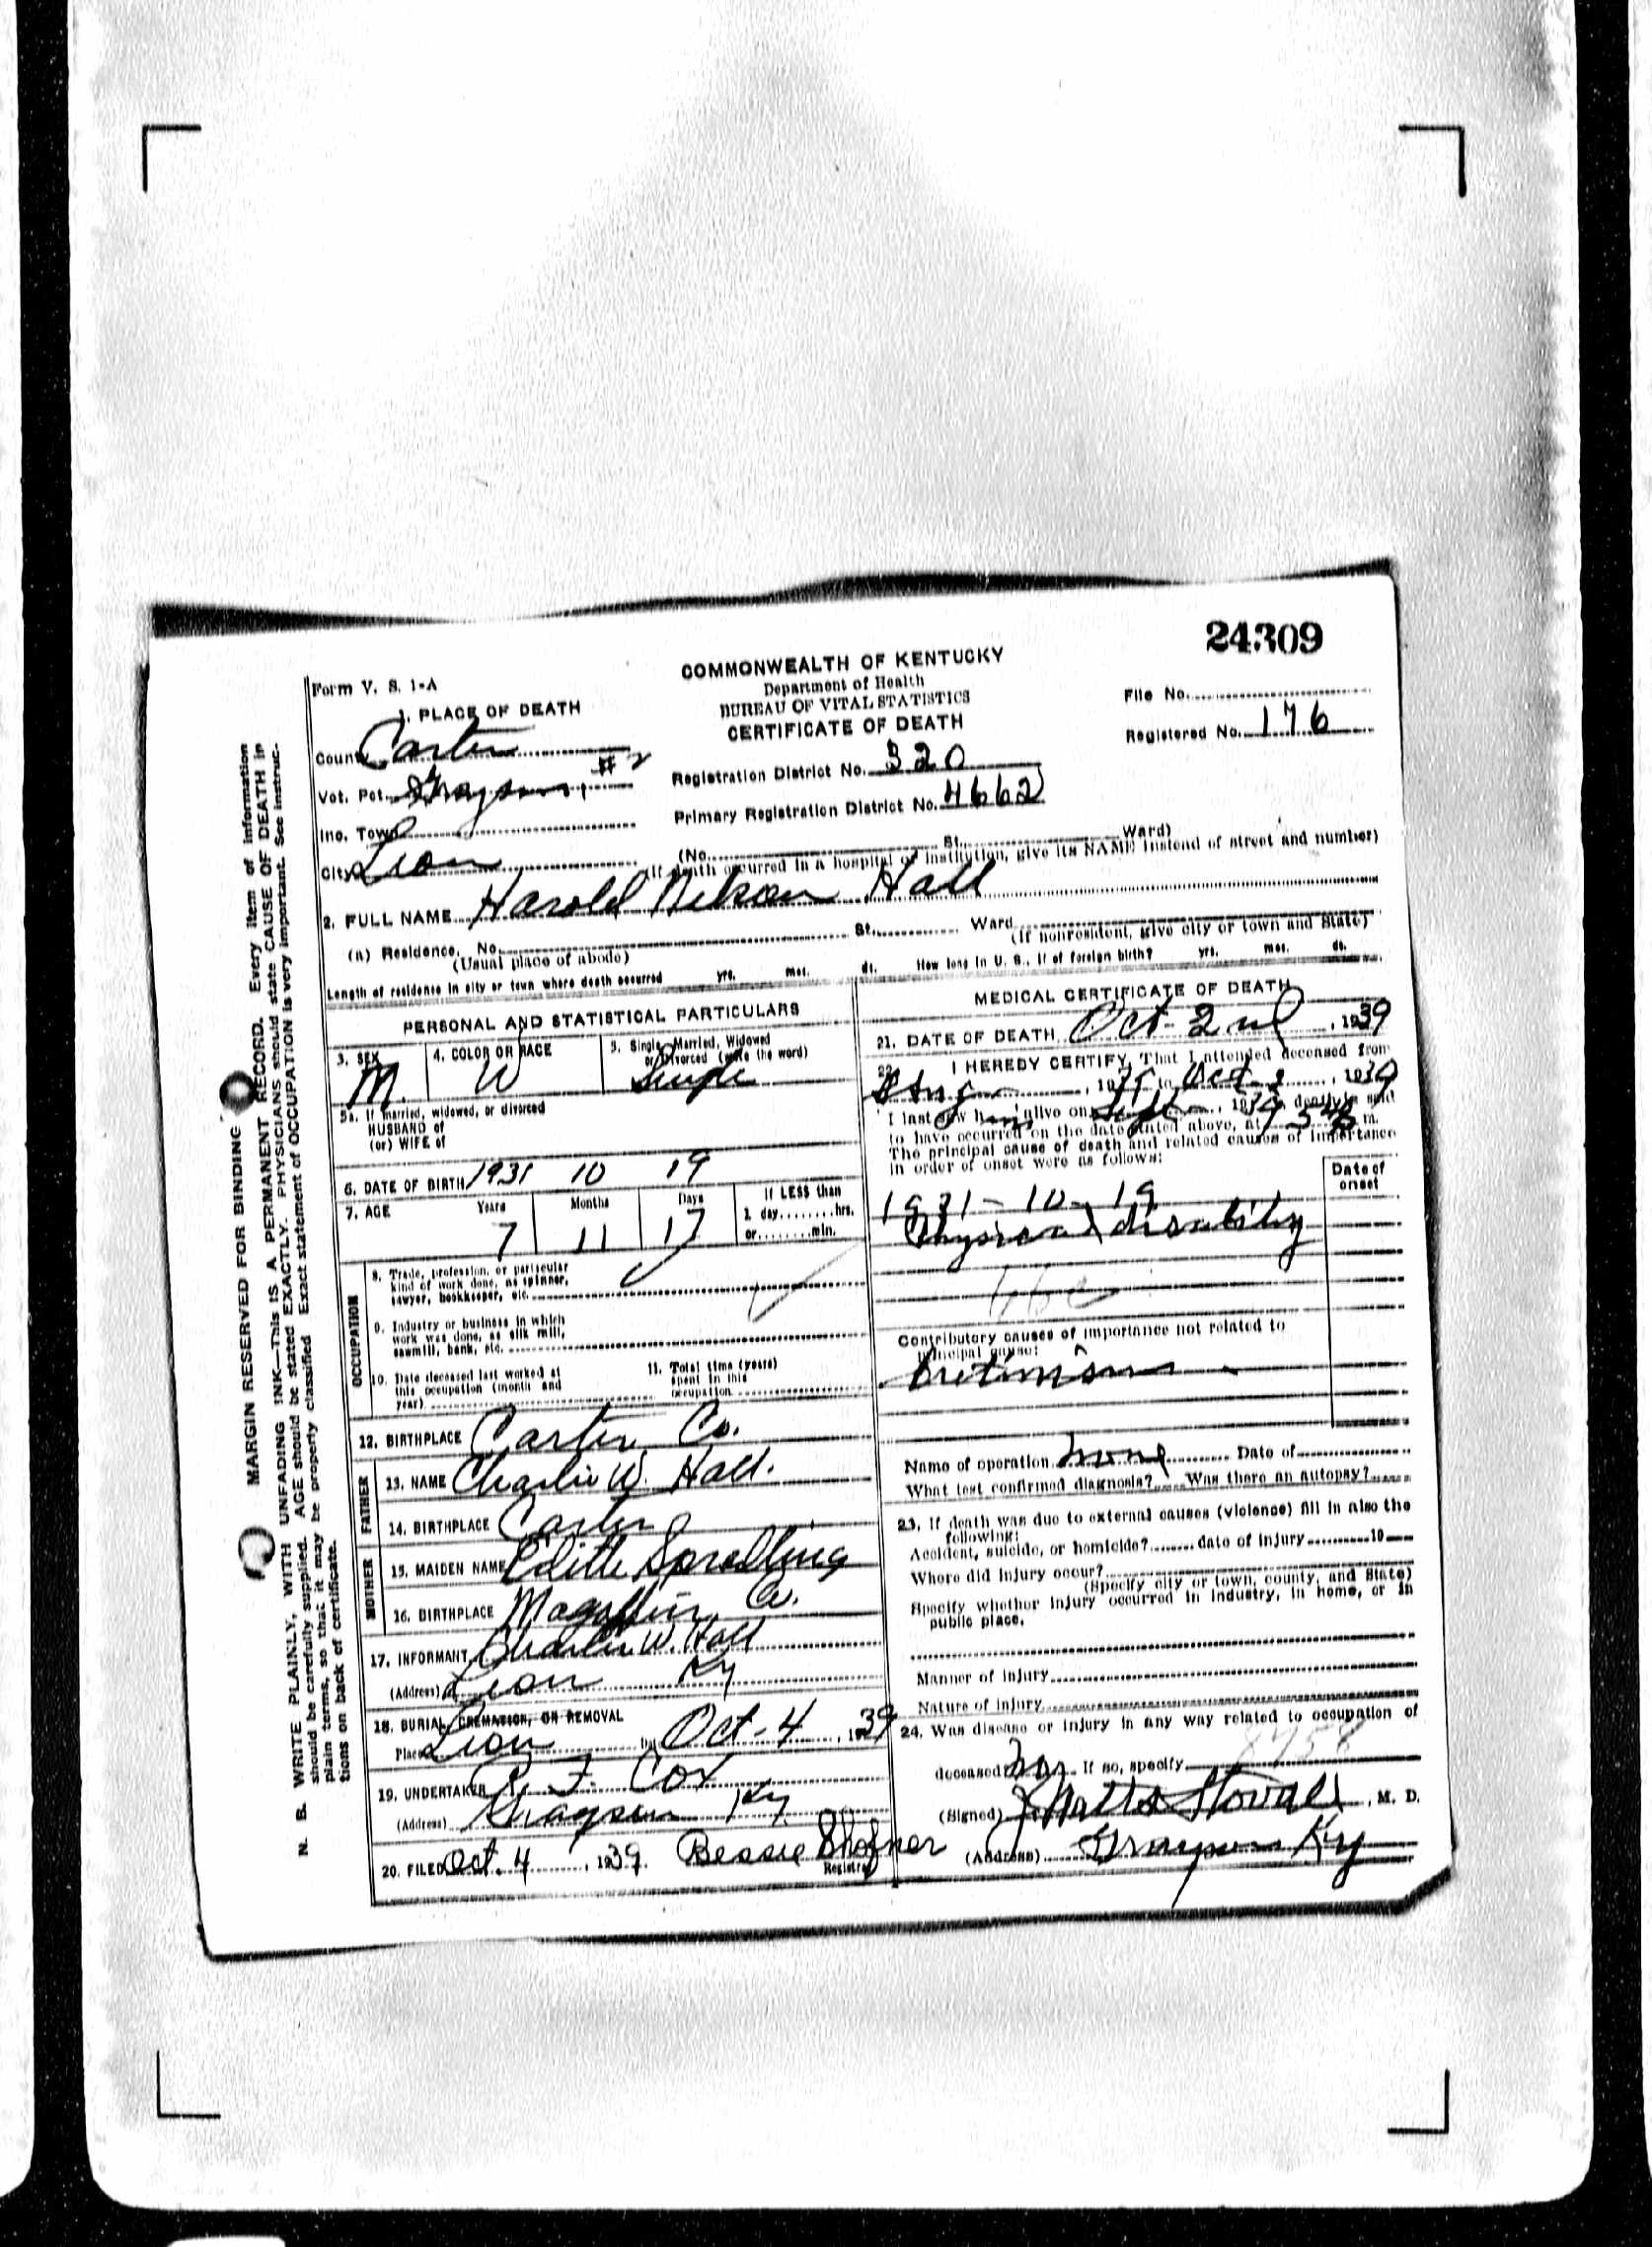 24309
Form V. S. 1-A
COMMONWEALTH OF KENTUCKY
Department of Health
BUREAU OF VITAL STATISTICS
CERTIFICATE OF DEATH
File No.
Registered No. 176
1. PLACE OF DEATH
County Carter
Vot. Pct. Grayson #2
Inc. Town
City Leon
Registration District No. 320
Primary Registration District No. 4662
(No. St., Ward)
(If death occurred in a hospital or institution, give its NAME instead of street and number)
2. FULL NAME Harold Nelson Hall
(a) Residence. No. St., Ward
(Usual place of abode) (If nonresident, give city or town and State)
Length of residence in city or town where death occurred yrs. mos. ds. How long in U. S., if of foreign birth? yrs. mos. ds.
PERSONAL AND STATISTICAL PARTICULARS
3. SEX M.
4. COLOR OR RACE W
5. Single, Married, Widowed
or Divorced (write the word)
Single
5a. If married, widowed, or divorced
HUSBAND of
(or) WIFE of
6. DATE OF BIRTH 1931 10 19
7. AGE Years Months Days If LESS than
1 day........hrs.
or........min.
7 11 17
OCCUPATION
8. Trade, profession, or particular
kind of work done, as spinner,
sawyer, bookkeeper, etc.
9. Industry or business in which
work was done, as silk mill,
sawmill, bank, etc.
10. Date deceased last worked at
this occupation (month and
year)
11. Total time (years)
spent in this
occupation
12. BIRTHPLACE Carter Co.
FATHER
13. NAME Charlie W. Hall.
14. BIRTHPLACE Carter
MOTHER
15. MAIDEN NAME Edith Spradling
16. BIRTHPLACE Magoffin Co.
17. INFORMANT Charlie W. Hall
(Address) Leon Ky
18. BURIAL, CREMATION, OR REMOVAL
Place Leon Date Oct-4, 1939
19. UNDERTAKER R. F. Cox
(Address) Grayson Ky.
20. FILED Oct. 4, 1939. Bessie Shofner
Registrar
MEDICAL CERTIFICATE OF DEATH
21. DATE OF DEATH Oct-2nd, 1939
22. I HEREBY CERTIFY, That I attended deceased from
, 19 to Oct 2, 1939
I last saw him alive on Sept, 1939, death is said
to have occurred on the date stated above, at m.
The principal cause of death and related causes of importance
in order of onset were as follows:
Date of
onset
1931-10-19
Physical disability
Contributory causes of importance not related to
principal cause:
Cretinism
Name of operation none Date of
What test confirmed diagnosis? Was there an autopsy?
23. If death was due to external causes (violence) fill in also the
following:
Accident, suicide, or homicide? date of injury 19
Where did injury occur?
(Specify city or town, county, and State)
Specify whether injury occurred in industry, in home, or in
public place.
Manner of injury
Nature of injury
24. Was disease or injury in any way related to occupation of
deceased? no If so, specify
(Signed) J. Watts Stovall, M. D.
(Address) Grayson Ky
MARGIN RESERVED FOR BINDING
N. B. WRITE PLAINLY, WITH UNFADING INK—This IS A PERMANENT RECORD. Every item of information
should be carefully supplied. AGE should be stated EXACTLY. PHYSICIANS should state CAUSE OF DEATH in
plain terms, so that it may be properly classified. Exact statement of OCCUPATION is very important. See instruc-
tions on back of certificate.